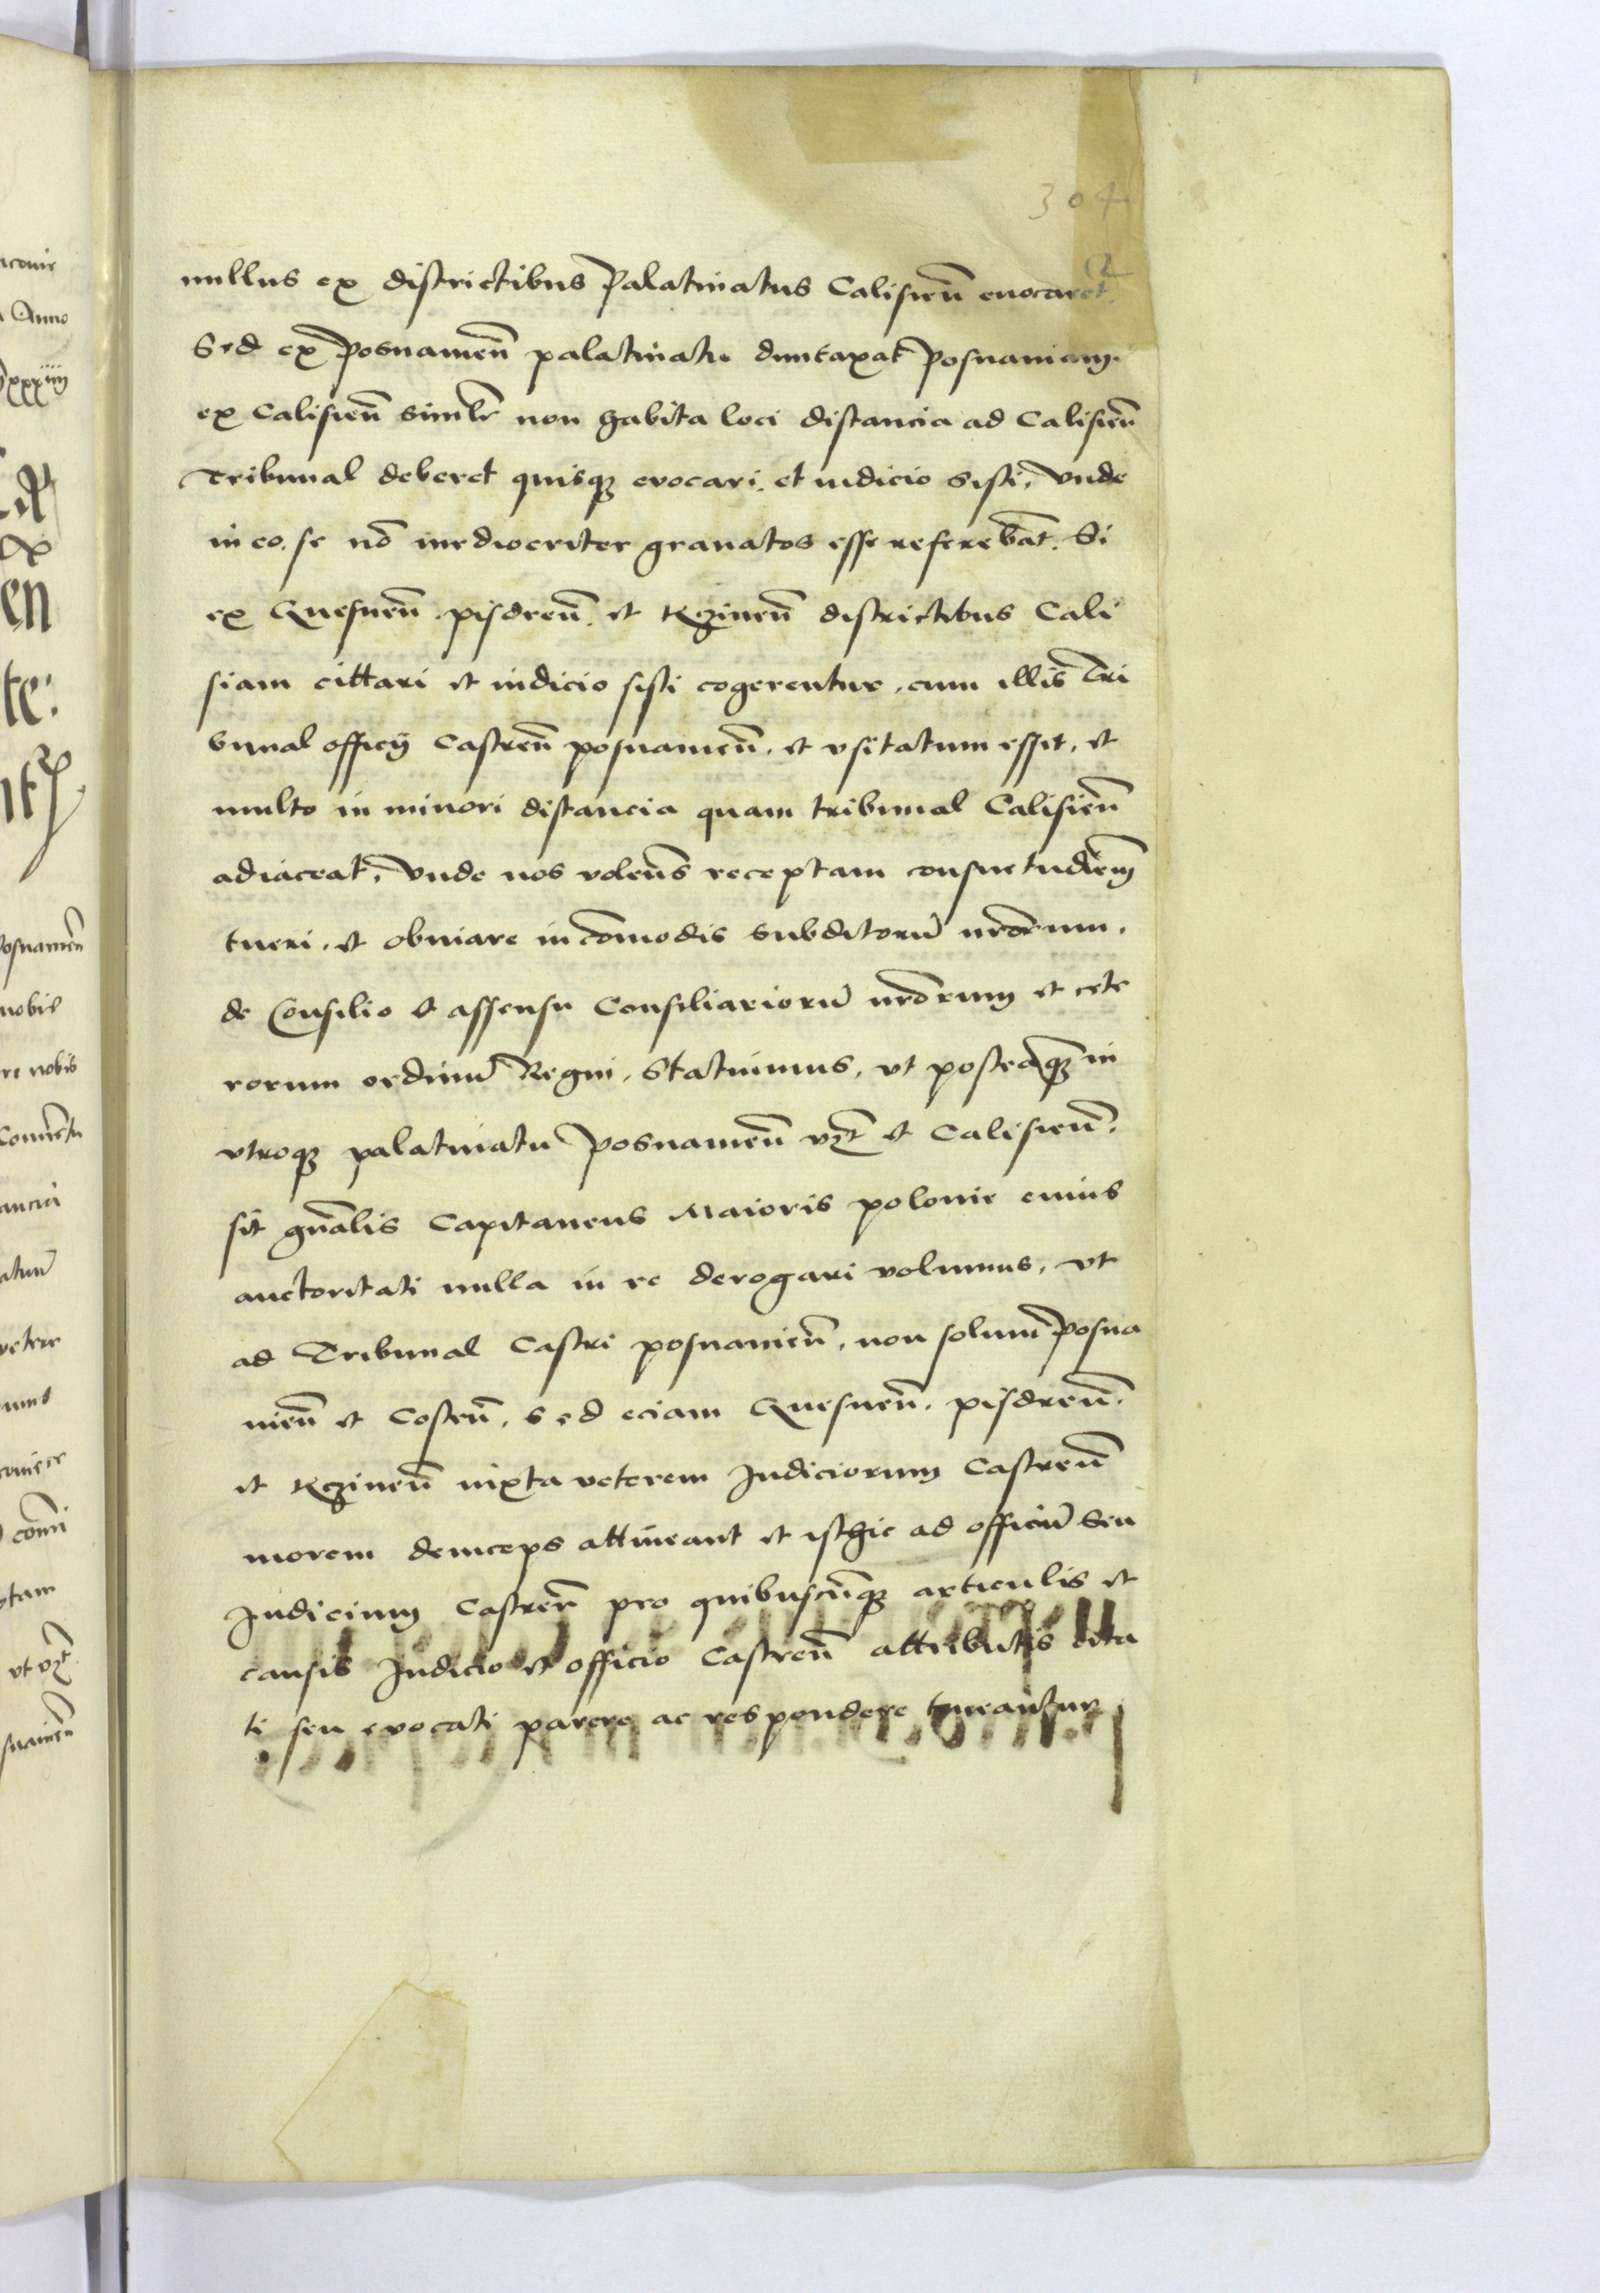 304
2
nullus ex districtibus Palatinatus Calisieñ euocaret.
Sed ex Posnanieñ palatinatu duntaxat Posnaniam.
ex Calisieñ simlr̃ non habita loci distancia ad Calisieñ
Tribunal deberet quisq3 evocari. et iudicio sisti, Vnde
in eo. se nõ mediocriter grauatos esse referebãt. Si
ex Gnesneñ. pisdreñ. et Kczineñ districtibus Cali
siam cittari et iudicio sisti cogerentur. cum illis Tri
bunal officij Castreñ posnanieñ. et vsitatum esset, et
multo in minori distancia quam tribunal Calisieñ
adiaceat, Vnde nos volen̄s receptam consuetudiem̃
tueri. et obuiare incõmodis subditorũ nr̃orum.
de Consilio et assensu Consiliariorũ nr̃orum et cete
rorum ordinũ Regni. Statuimus, vt posteaq3 in
vtroq3 palatinatu Posnanieñ vz̃t et Calisieñ.
sit gñalis Capitaneus Maioris polonie cuius
auctoritati nulla in re derogari volumus, vt
ad Tribunal Castri posnanieñ, non solum Posna
nieñ et Costeñ, sed eciam Gnesneñ. pisdreñ.
et Kczineñ iuxta veterem Iudiciorum Castreñ
morem deinceps attineant et isthic ad officiũ seu
Iudicium Castreñ pro quibuscũq3 articulis et
causis Iudicio et officio Castreñ attributis cita
ti seu evocati parere ac respondere teneantur